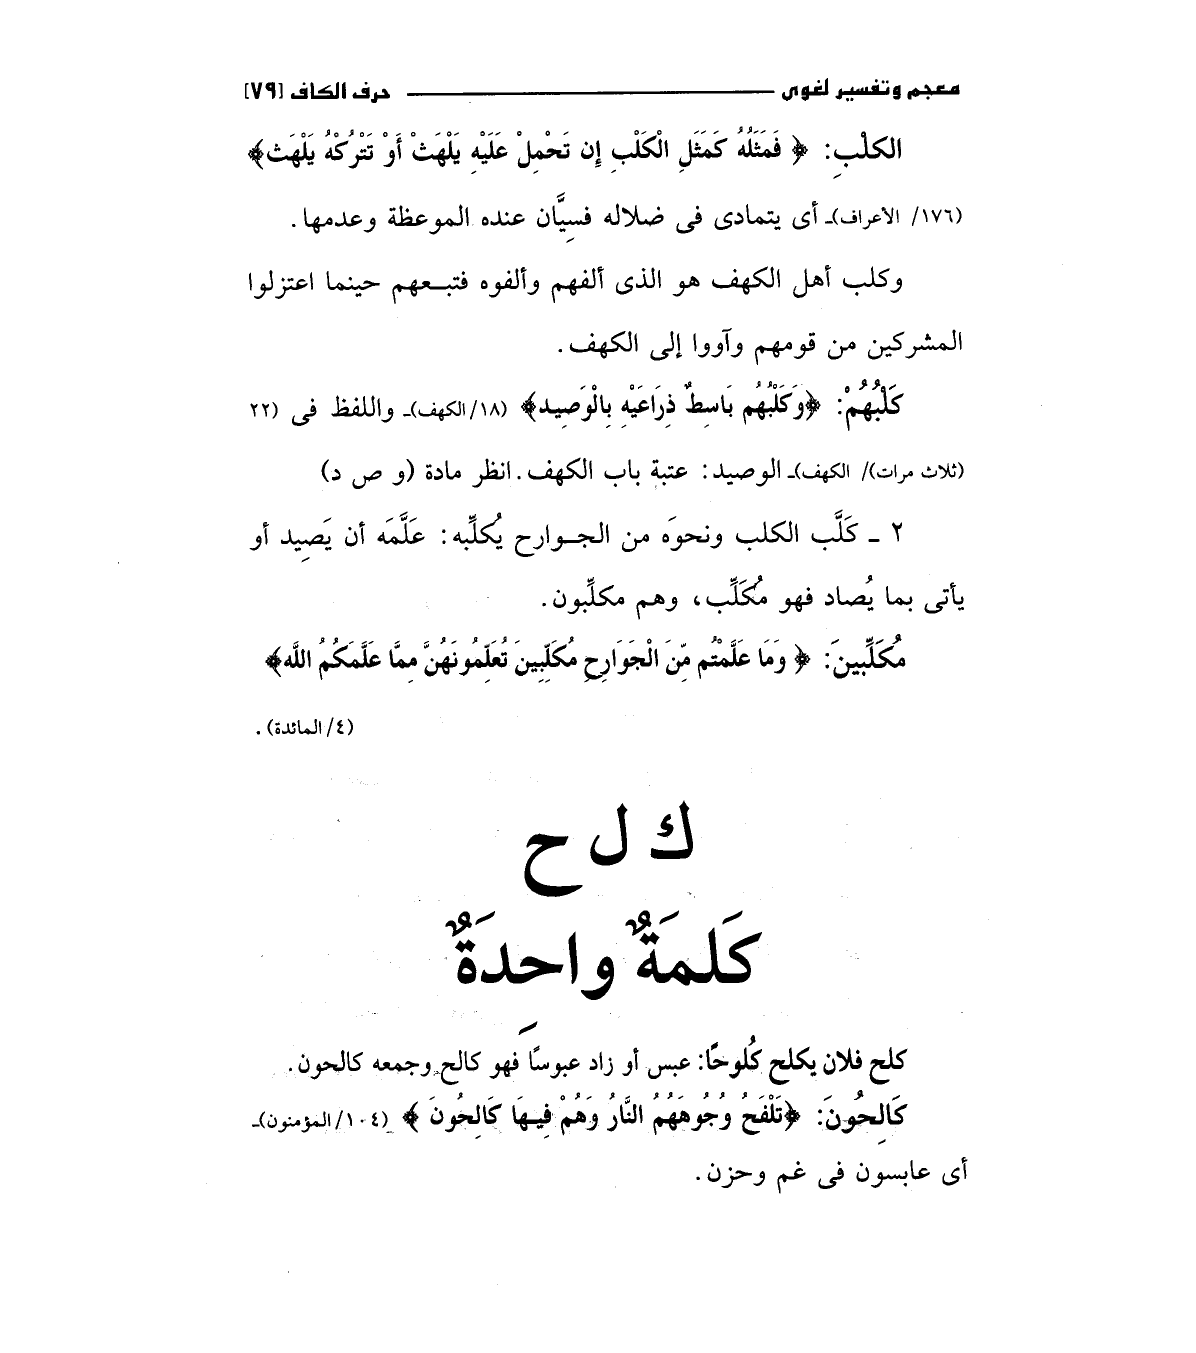 معجم وتفسير لغوى ـــــــــ حرف الكاف [٧٩]
الكلْبِ: ﴿ فَمَثَلُهُ كَمَثَلِ الْكَلْبِ إِن تَحْمِلْ عَلَيْهِ يَلْهَثْ أَوْ تَتْرُكْهُ يَلْهَث﴾
(١٧٦/ الأعراف)ـ أى يتمادى فى ضلاله فسِيَّان عنده الموعظة وعدمها.
وكلب أهل الكهف هو الذى ألفهم وألفوه فتبـعهم حينما اعتزلوا
المشركين من قومهم وآووا إلى الكهف.
كَلْبُهُمْ: ﴿وَكَلْبُهُم بَاسِطٌ ذِرَاعَيْهِ بِالْوَصِيد﴾ (١٨/الكهف)ـ واللفظ فى (٢٢
(ثلاث مرات)/ الكهف)ـ الوصيد: عتبة باب الكهف. انظر مادة (و ص د)
٢ ـ كَلَّب الكلب ونحوَه من الجـوارح يُكلِّبه: عَلَّمَه أن يَصِيد أو
يأتى بما يُصاد فهو مُكَلِّب، وهم مكلِّبون.
مُكَلِّبينَ: ﴿ وَمَا عَلَّمْتُم مِّنَ الْجَوَارِحِ مُكَلِّبِينَ تُعَلِّمُونَهُنَّ مِمَّا عَلَّمَكُمُ اللَّه﴾
(٤/ المائدة).
ك ل ح
كَلِمَةٌ واحِدَةٌ
كلح فلان يكلح كُلوحًا: عبس أو زاد عبوسًا فهو كالح وجمعه كالحون.
كَالِحُونَ: ﴿تَلْفَحُ وُجُوهَهُمُ النَّارُ وَهُمْ فِيهَا كَالِحُونَ ﴾ (١٠٤/المؤمنون)ـ
أى عابسون فى غم وحزن.